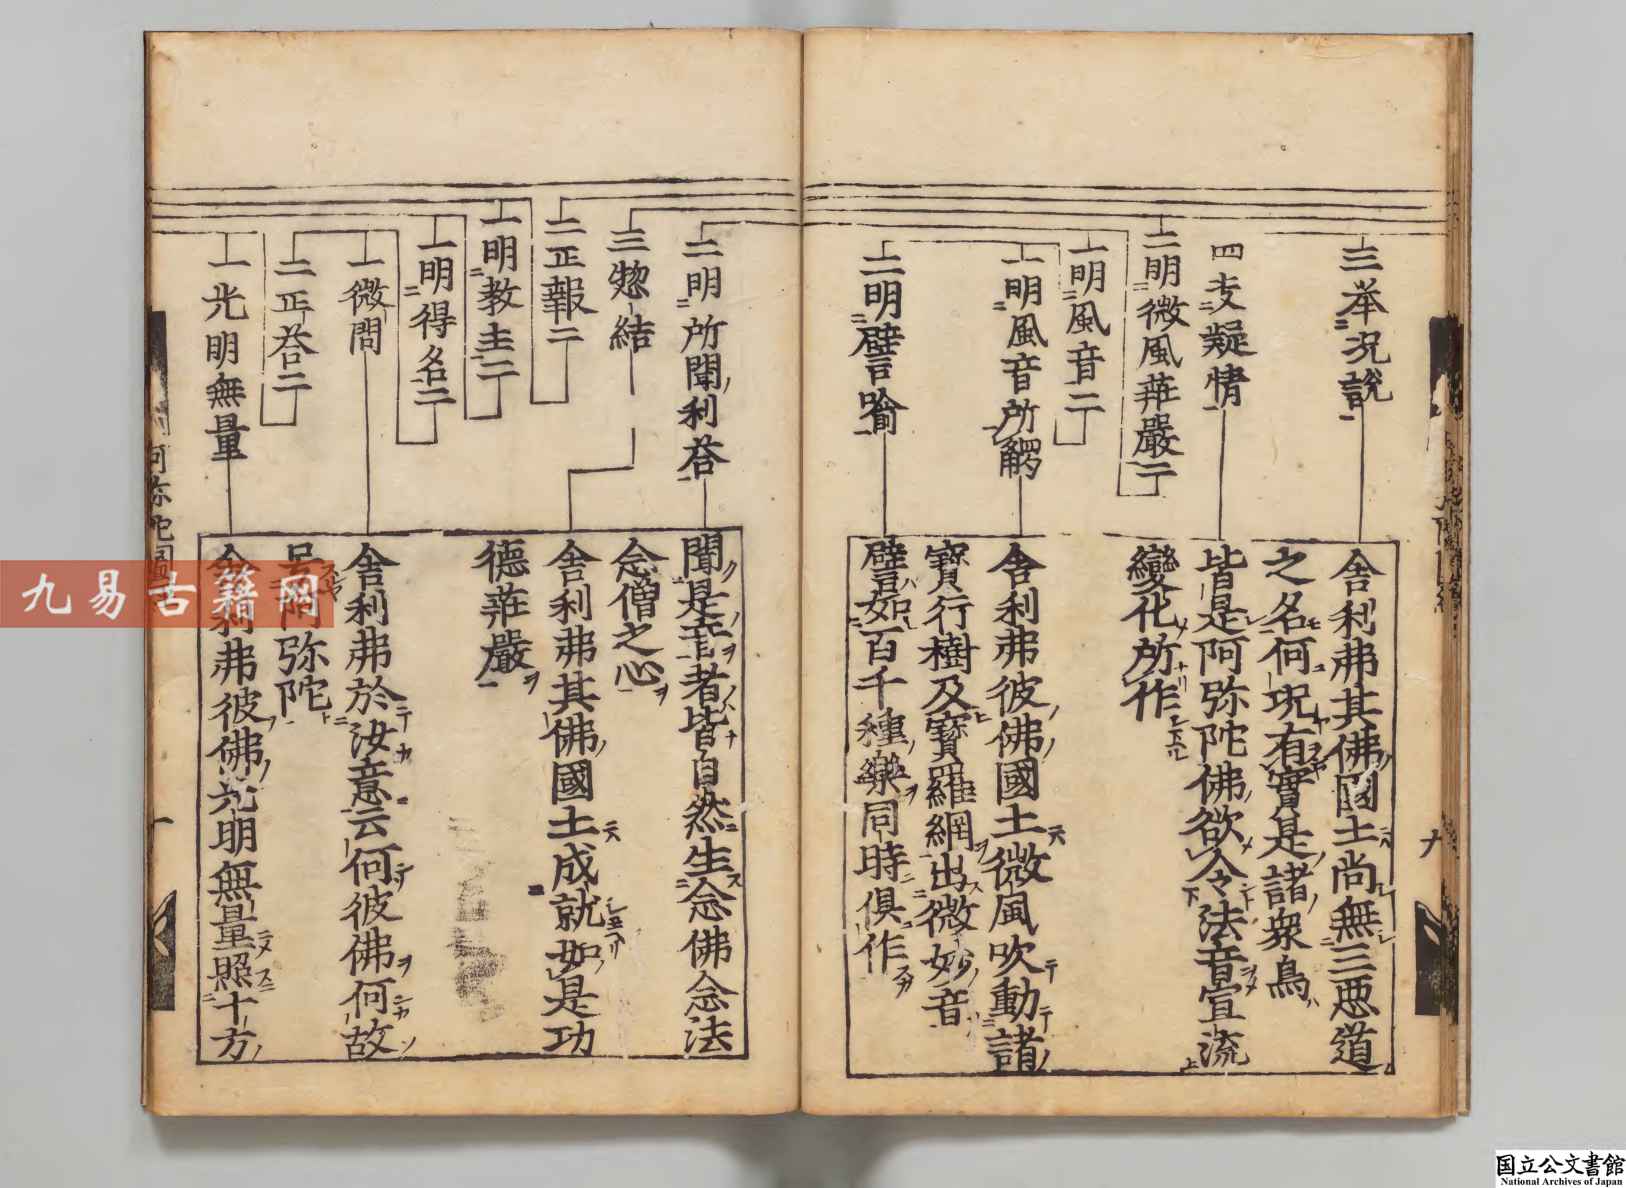 三举况説
四㞢疑情
二明微風莊嚴二
一明風音二
一明風音所觸
二明譬喻
舎利弗其佛國土尚無三悪道
之名何况有實是諸衆鳥
皆是阿弥陀佛欲令法音宣流
變化所作
舎利弗彼佛國土微風吹動諸
寳行樹及寳羅網出微妙音
譬如百千種樂同時俱作
二明所聞利荅
三惣結
二正報二
一明教主二
一明得名二
一徵問
二正荅二
一光明無量
聞是音者皆自然生念佛念法
念僧之心
舎利弗其佛國土成就如是功
德莊嚴
舎利弗於汝意云何彼佛何故
号阿弥陀
舎利弗彼佛光明無量照十方
九易古籍网
国立公文書館
National Archives of Japan